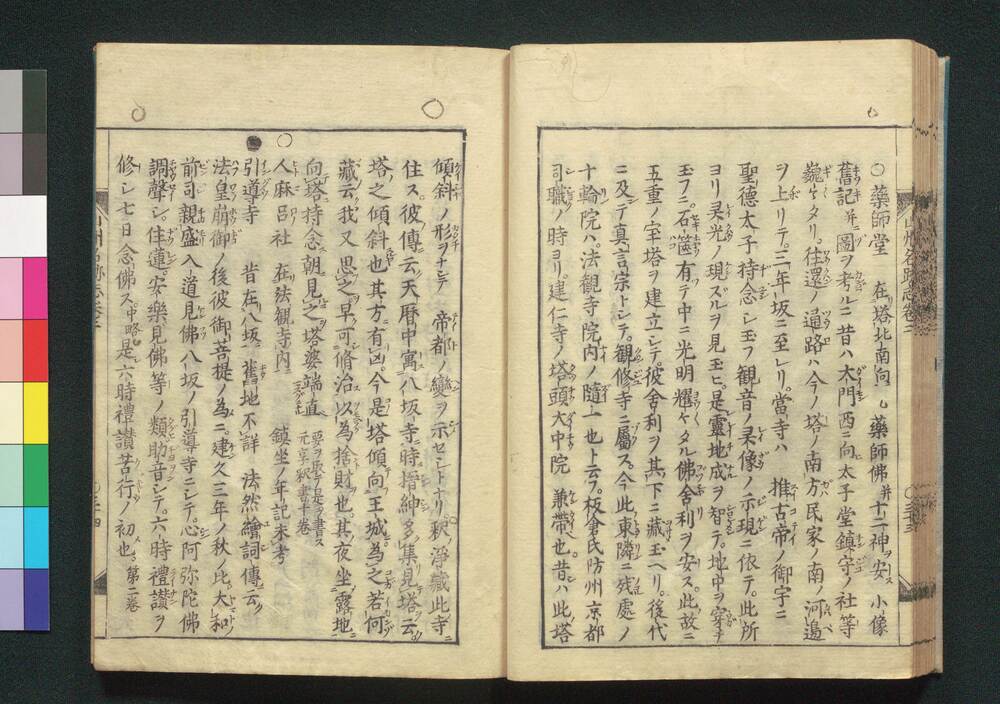 ○藥師堂 在塔北南向 ㄴ藥師佛 并十二神ヲ安ス 小像
舊記并ニ圖ヲ考ルニ昔ハ大門西ニ向太子堂鎮守ノ社等
巍々タリ。往還ノ通路ハ今ノ塔ノ南方民家ノ南ノ河邉
ヲ上リテ。三年坂ニ至レリ。當寺ハ 推古帝ノ御宇ニ
聖德太子持念シ玉フ觀音ノ灵像ノ示現ニ依テ。此所
ヨリ灵光ノ現ズルヲ見玉ヒ。是靈地成ヲ智テ。地中ヲ穿チ
玉フニ。石篋有テ中ニ光明耀ヤタル佛舎利ヲ安ス。此故ニ
五重ノ宝塔ヲ建立シテ彼舎利ヲ其下ニ藏玉ヘリ。後代
ニ及テ真言宗トシテ。觀修寺ニ屬ス。今此東隣ニ残處ノ
十輪院ハ。法觀寺院内ノ隨一也ト云フ。板倉氏防州京都
司職ノ時ヨリ。建仁寺ノ塔頭大中院 兼帶也。昔ハ此塔
傾斜ノ形ヲナシテ 帝都ノ變ヲ示セントナリ。釈ノ淨藏此寺ニ
住ス。彼傳云天曆中寓八坂寺時搢紳多集見塔。云
塔之傾斜也其方有凶。今是塔傾向王城為之若何
藏云我又思之早可脩治以為捨財也。其夜坐露地
向塔持念朝見之塔婆端直 元亨釈書十卷
○人麻呂社 在法觀寺内 鎮坐ノ年記未考
●引導寺 昔在八坂。舊地不詳 法然繪詞傳云
法皇崩御ノ後彼御菩提ノ為ニ。建久三年ノ秋ノ比。大和
前司親盛入道見佛八坂ノ引導寺ニシテ。心阿弥陀佛
調聲シ。住蓮。安樂見佛等ノ類助音シテ。六時禮讃ヲ
修シ七日念佛ス。中略 是六時禮讃苦行ノ初也。第二卷